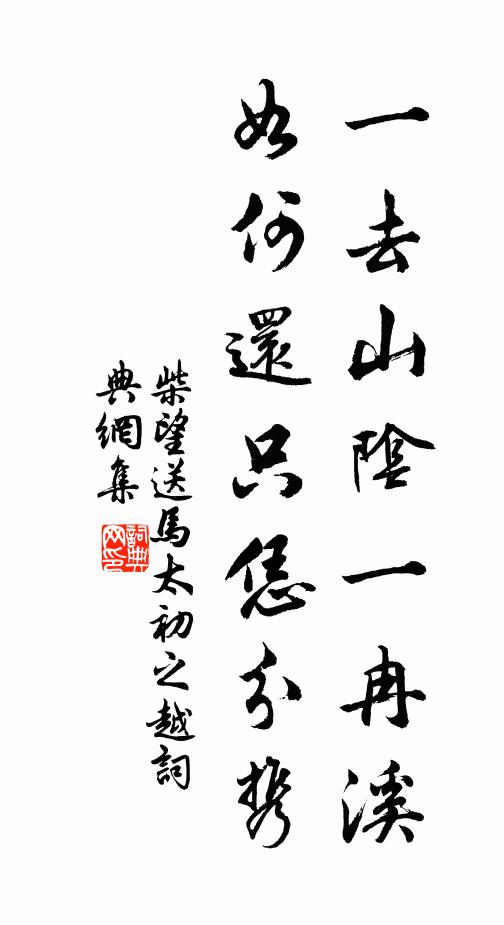 一去山陰一冉溪
如何還只恁分携
柴望送馬太初之越詞
典網集
詞典
网印